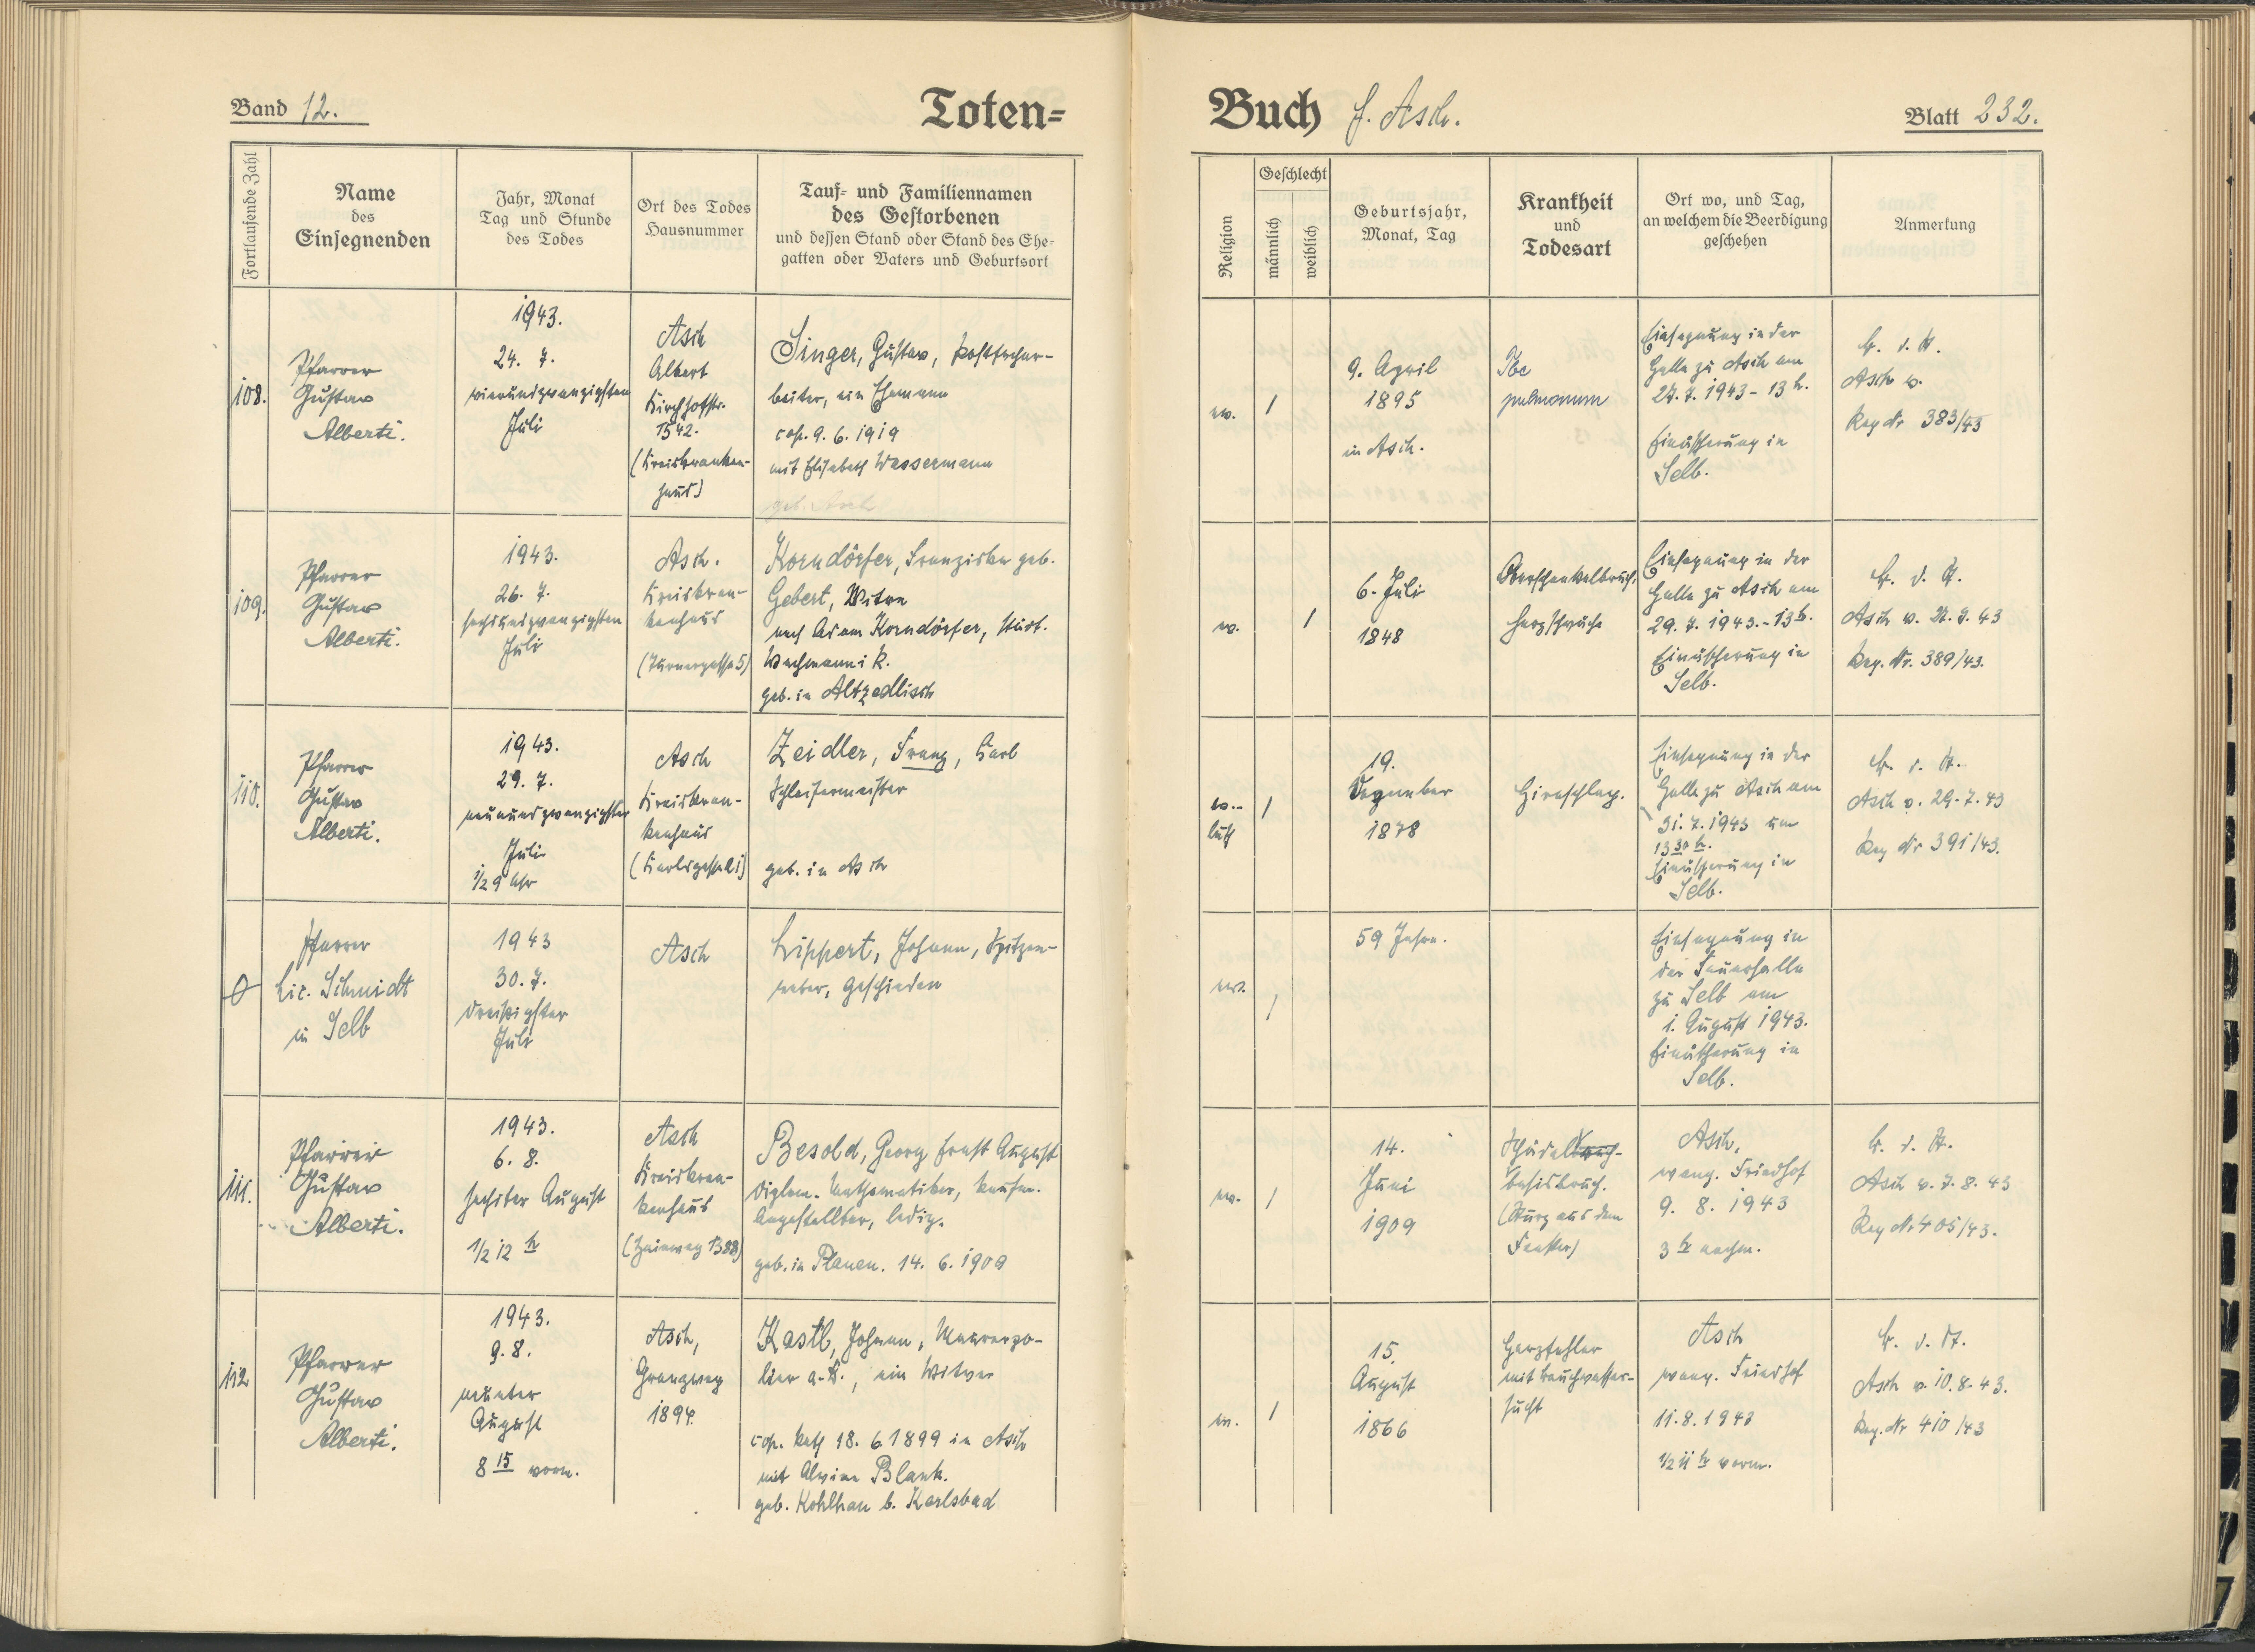 Band 12.
Toten-
Buch f. Asch.
Blatt 232.
Fortlaufende Zahl
Name
des
Einsegnenden
Jahr, Monat
Tag und Stunde
des Todes
Ort des Todes
Hausnummer
Tauf- und Familiennamen
des Gestorbenen
und dessen Stand oder Stand des Ehe-
gatten oder Vaters und Geburtsort
Religion
Geschlecht
männlich
weiblich
Geburtsjahr,
Monat, Tag
Krankheit
und
Todesart
Ort wo, und Tag,
an welchem die Beerdigung
geschehen
Anmerkung
108.
Pfarrer
Gustav
Alberti.
1943.
24. 7.
vierundzwanzigsten
Juli
Asch
Albert
Kirchhoffstr.
1542.
(Kreiskranken-
haus)
Singer, Gustav,
beiter, ein Ehemann
cop. 9. 6. 1919
mit Elisabeth Wassermann
geb. Asch
ev.
1
9. April
1895
in Asch.
Tbc
pulmonum
Einsegnung in der
Halle zu Asch am
27. 7. 1943 - 13 h.
Einäscherung in
Selb.
Asch v.
Reg Nr 383/43
109.
Pfarrer
Gustav
Alberti.
1943.
26. 7.
sechsundzwanzigsten
Juli
Asch.
Kreiskran-
kenhaus
(Turnergasse 5)
Korndörfer, Franziska geb.
Gebert, Witwe
nach Adam Korndörfer, städt.
Wachmann i. R.
geb. in Altzedlisch
ev.
1
6. Juli
1848
Oberschenkelbruch.
Herzschwäche
Einsegnung in der
Halle zu Asch am
29. 7. 1943. - 13 h.
Einäscherung in
Selb.
Asch v. 43
Reg. Nr. 389/43.
110.
Pfarrer
Gustav
Alberti.
1943.
29. 7.
neunundzwanzigster
Juli
1/2 9 Uhr
Asch
Kreiskran-
kenhaus
(Karlsgasse 1)
Zeidler, Franz, Karl
Schleifermeister
geb. in Asch
ev.-
luth
1
19.
Dezember
1878
Hirnschlag.
Einsegnung in der
Halle zu Asch am
31. 7. 1943 um
13 30 h.
Einäscherung in
Selb.
Asch v. 29. 7. 43
Reg Nr 391/43.
0
Pfarrer
Lic. Schmidt
in Selb
1943
30. 7.
dreißigster
Juli
Asch
Lippert, Johann, Spitzen-
weber, geschieden
ev.
1
59 Jahre.
Einsegnung in
der Trauerhalle
zu Selb am
1. August 1943.
Einäscherung in
Selb.
111.
Pfarrer
Gustav
Alberti.
1943.
6. 8.
sechster August
1/2 12 h
Asch
Kreiskran-
kenhaus
(Hainweg 1388)
Besold, Georg Ernst August
Diplom. Mathematiker, kaufm.
Angestellter, ledig.
geb. in Plauen. 14. 6. 1909
ev.
1
14.
Juni
1909
Schädel
basisbruch.
(Sturz aus dem
Fenster)
Asch,
evang. Friedhof
9. 8. 1943
3 h nachm.
Asch v. 7. 8. 43
Reg Nr 405/43.
112
Pfarrer
Gustav
Alberti.
1943.
9. 8.
neunter
August
8 15 vorm.
Asch,
Grenzweg
1894.
Kastl, Johann, Maurerpo-
lier a. D., ein Witwer
cop. kath 18. 6 1899 in Asch
mit Alwine Blank.
geb. Kohlhau b. Karlsbad
ev.
1
15.
August
1866
Herzfehler
mit Bauchwasser-
sucht
Asch
evang. Friedhof
11. 8. 1943
1/2 11 h vorm.
Asch v. 10. 8. 43.
Reg. Nr 410/43